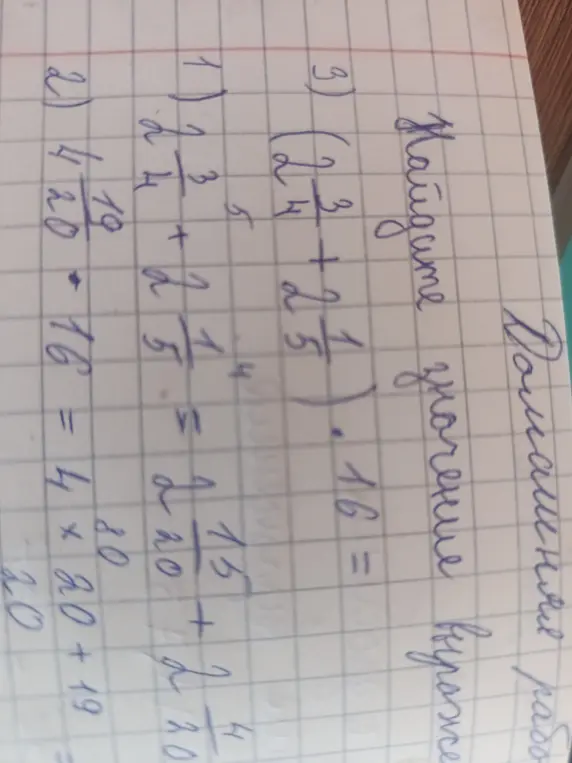 Домашняя рабо
Найдите значение выраже
3) (2 3/4 + 2 1/5) · 16 =
5 4
1) 2 3/4 + 2 1/5 = 2 15/20 + 2 4/20
80
2) 4 19/20 · 16 = 4 × 20 + 19 =
20